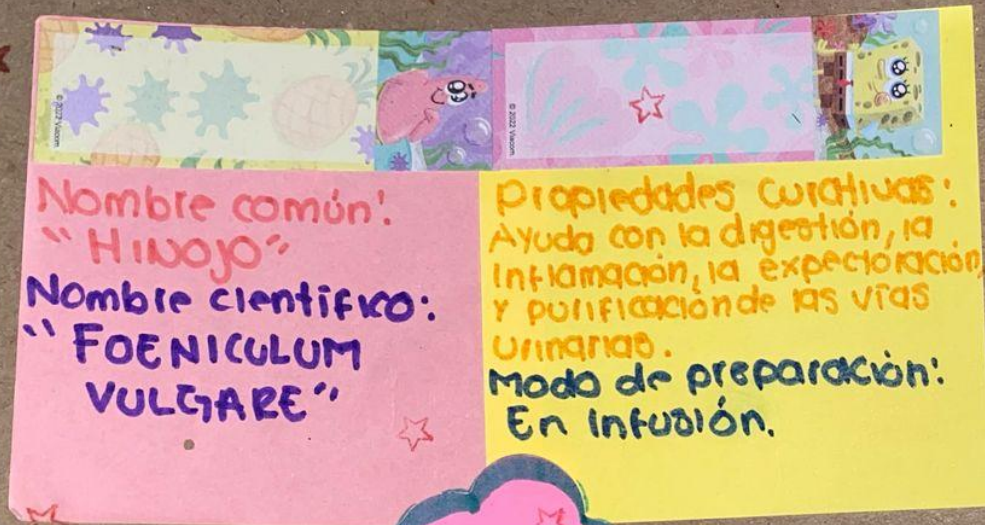 © 2022 Viacom
© 2022 Viacom
Nombre común:
"HINOJO"
Nombre cientifico:
"FOENICULUM
VULGARE"
Propiedades curativas:
Ayuda con la digestión, la
inflamación, la expectoración,
y purificación de las vías
urinarias.
Modo de preparación:
En infusión.